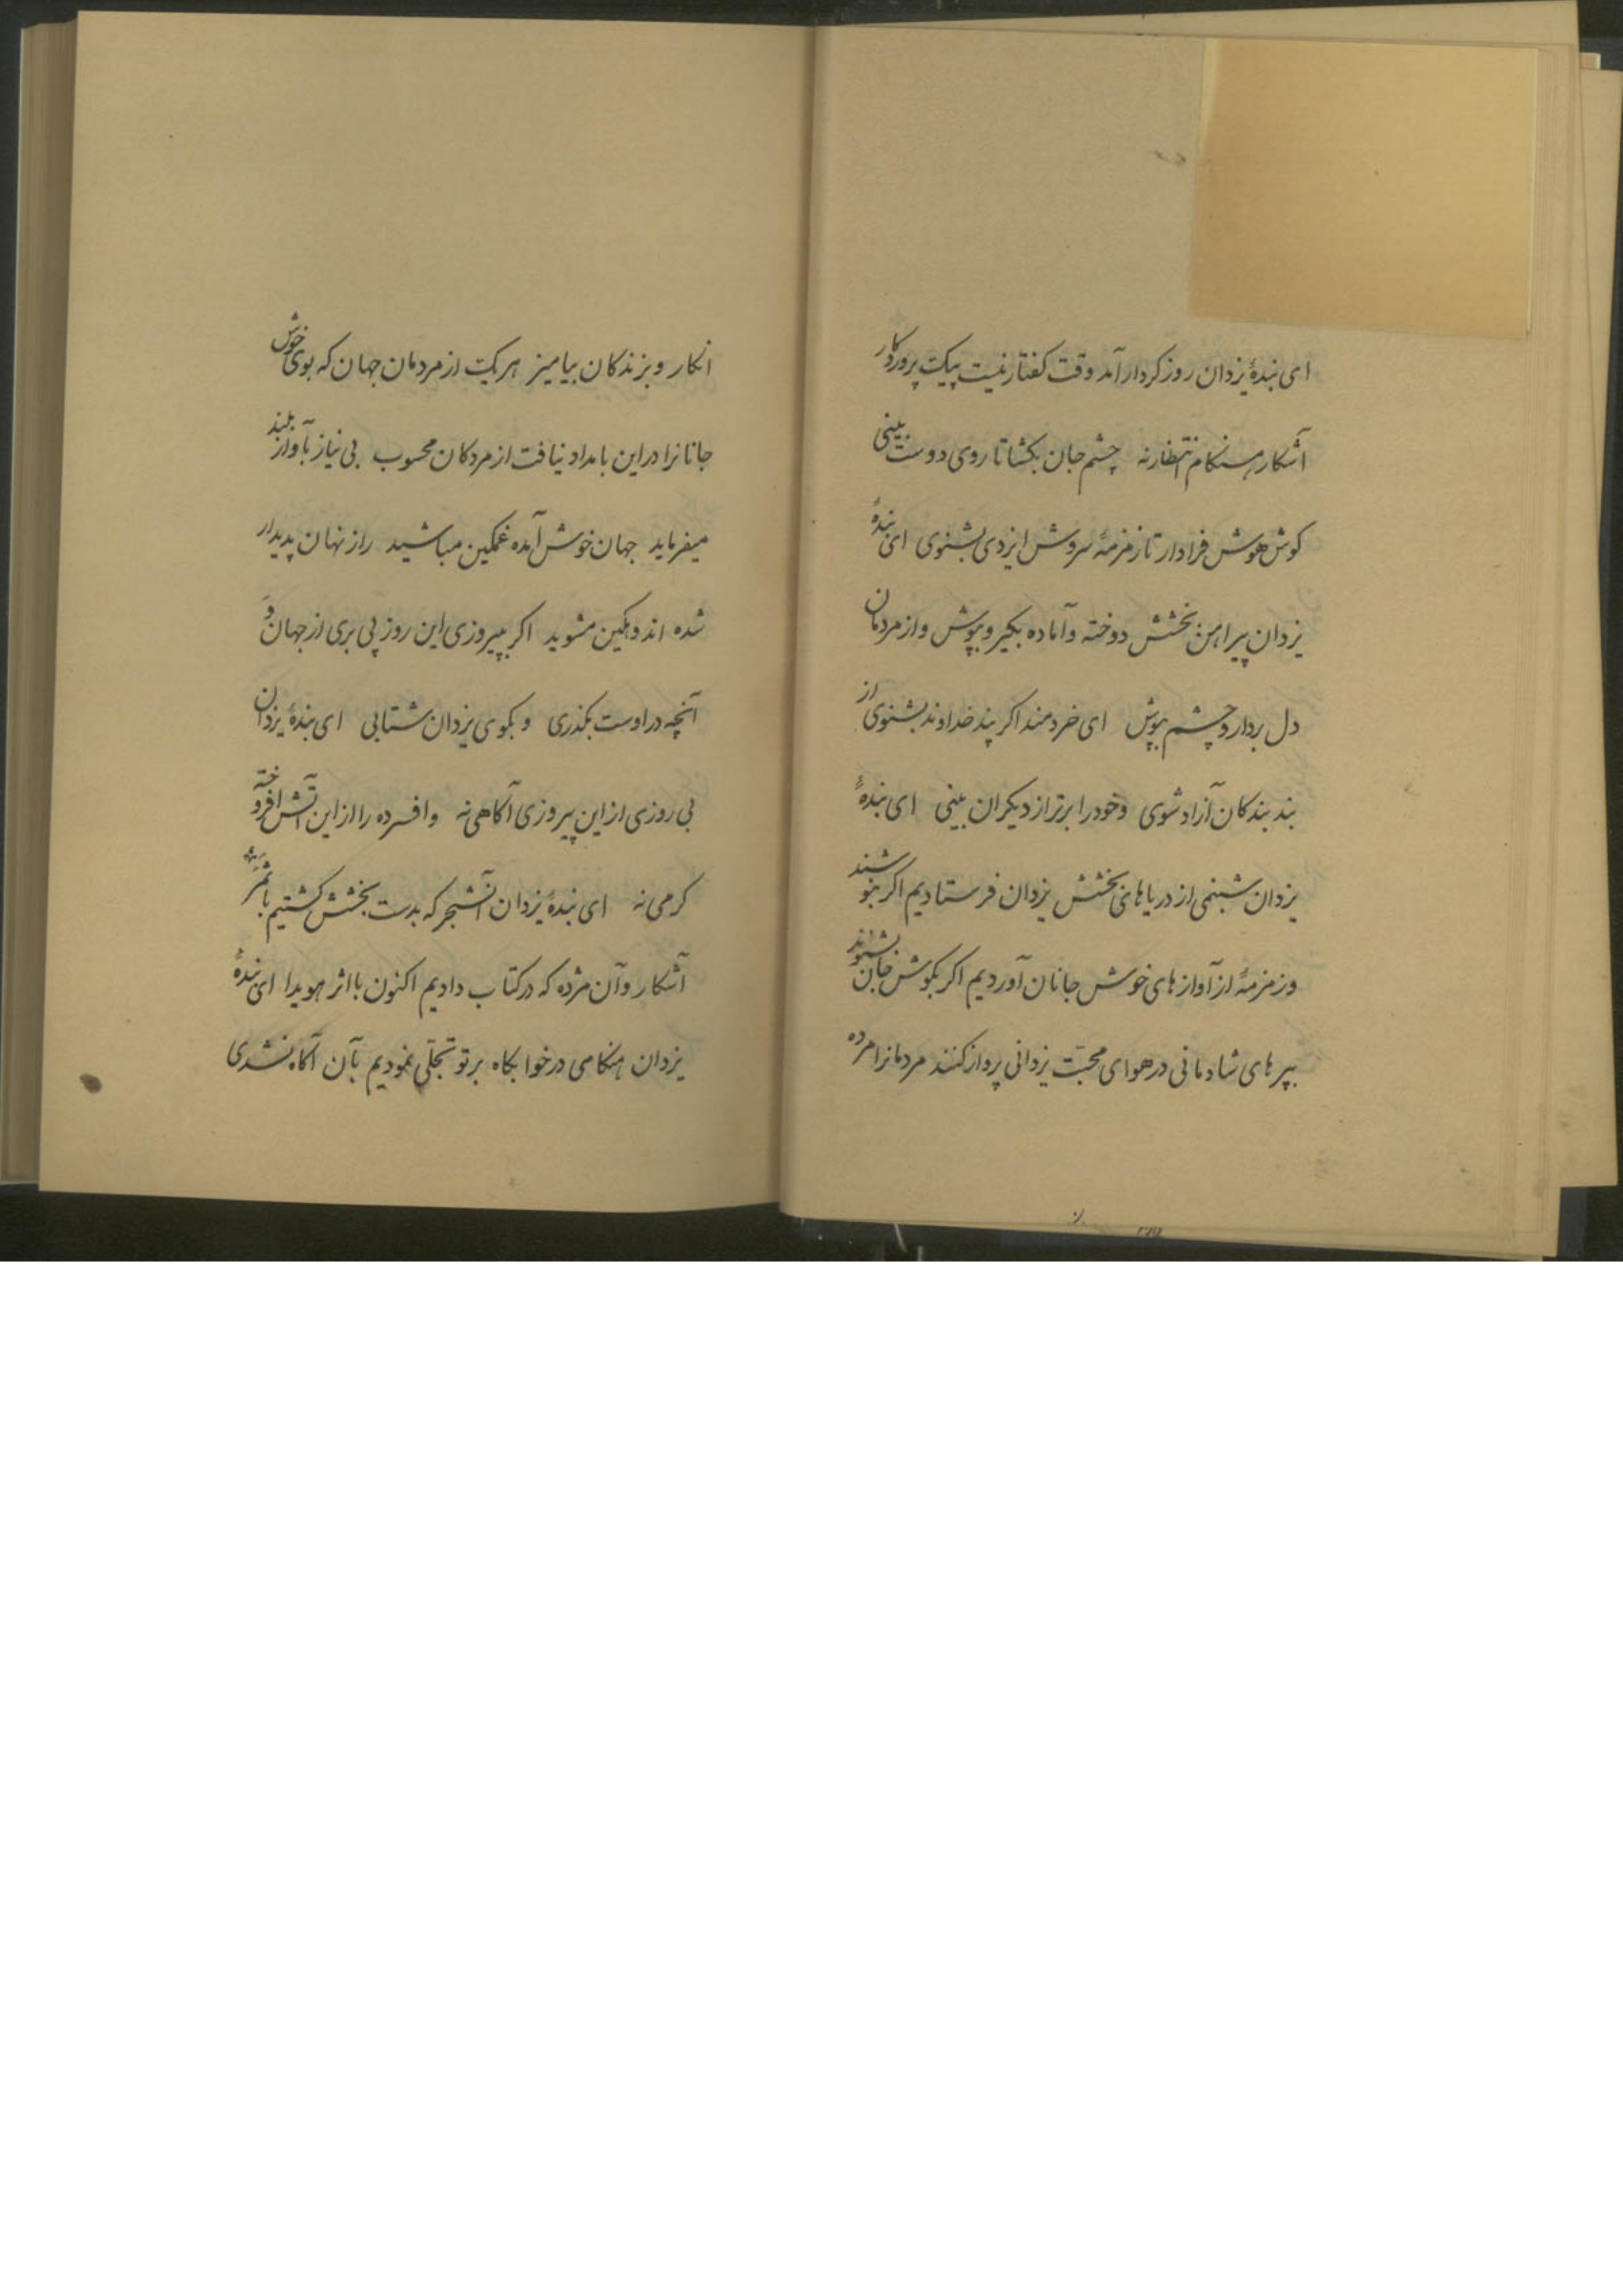 ای بندهٔ یزدان روز کردار آمد وقت کفتار نیست پیک پروردکار
آشکار هنکام انتظار نه چشم جان بکشا تا روی دوست بینی
کوش هوش فرا دار تا زمزمهٔ سروش ایزدی بشنوی ای بندهٔ
یزدان پیراهن بخشش دوخته و آماده بکیر و بپوش و از مردمان
دل بردار و چشم بپوش ای خردمند اکر پند خداوند بشنوی از
بند بندکان آزاد شوی و خود را برتر از دیکران بینی ای بندهٔ
یزدان شبنمی از دریاهای بخشش یزدان فرستادیم اکر بنوشند
و زمزمهٔ از آوازهای خوش جانان آوردیم اکر بکوش جان بشنوند
بپرهای شادمانی در هوای محبّت یزدانی پرواز کنند مردمانرا مرده
انکار و بزندکان بیامیز هر یک از مردمان جهان که بوی خوش
جانانرا در این بامداد نیافت از مردکان محسوب بی نیاز بآواز بلند
میفرماید جهان خوش آمده غمکین مباشید راز نهان پدیدار
شده اندوهکین مشوید اکر بپیروزی این روز پی بری از جهان و
آنچه در اوست بکذری و بکوی یزدان شتابی ای بندهٔ یزدان
بی روزی از این پیروزی آکاهی نه و افسرده را از این آتش افروخته
کرمی نه ای بندهٔ یزدان آن شجر که بدست بخشش کشتیم با ثمر
آشکار و آن مژده که در کتاب دادیم اکنون با اثر هویدا ای بندهٔ
یزدان هنکامی در خوابکاه بر تو تجلّی نمودیم بآن آکاه نشدی